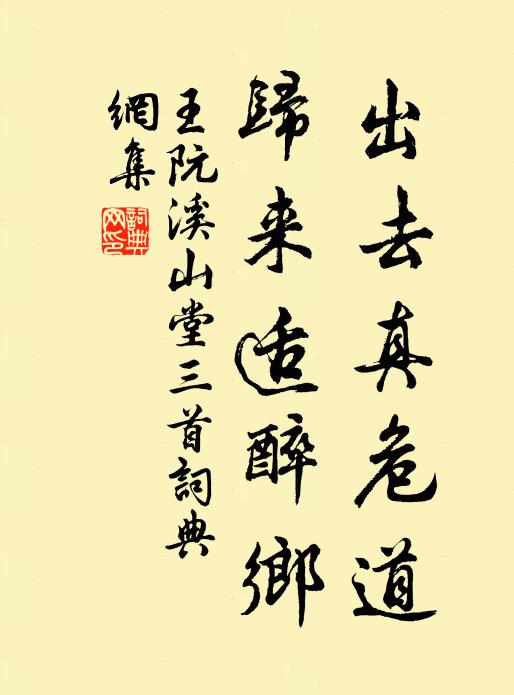 出去真危道
歸来适醉鄉
王阮溪山堂三首詞典
網集
詞典网印